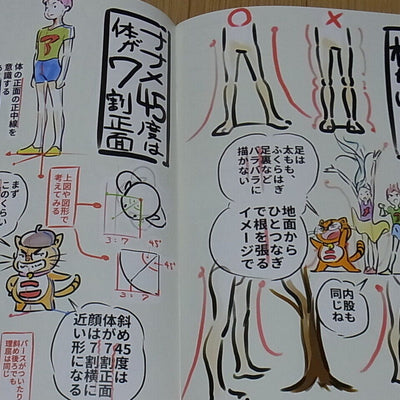 ナナメ45度は
体が7割正面
体の正面の正中線を
意識する
上図や図形で
考えてみる
3:7
45°
45°
3:7
まず
このくらい
斜め45度は
体が7割正面
顔は7割横に
近い形になる
パースがついたり
斜め後ろでも
理屈は同じ
ア
足は
太もも、ふくらはぎ
足裏などを
バラバラに
描かない
地面から
ひとつなぎ
で根を張る
イメージで
内股も
同じね